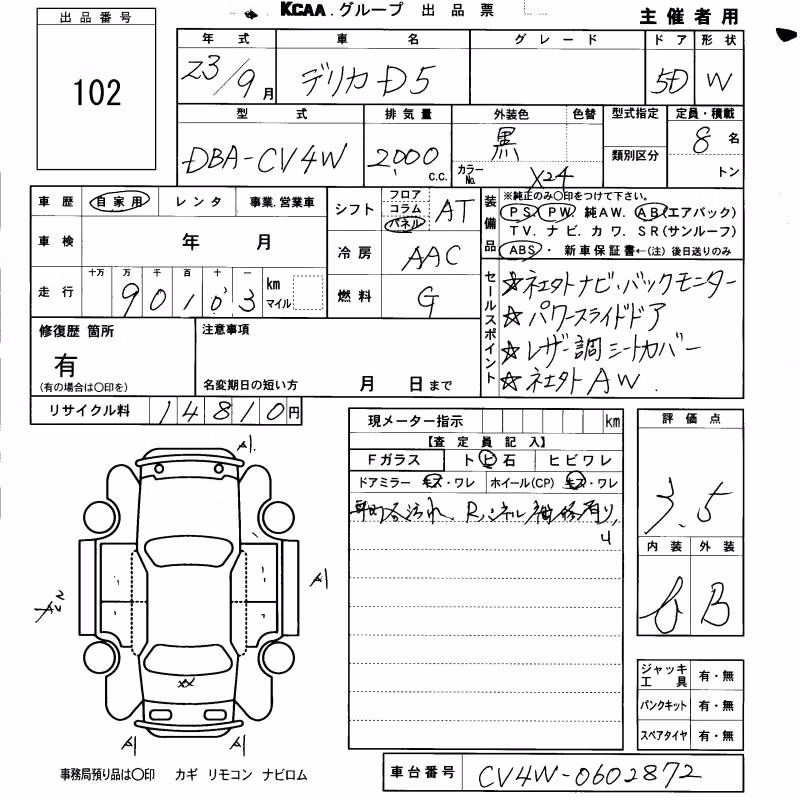 KCAA.グループ 出品票
主催者用
出品番号
102
年式 車名 グレード ドア 形状
23/9月 デリカD5 5D W
型式 排気量 外装色 色替 型式指定 定員・積載
DBA-CV4W 2,000 c.c. 黒 カラーNo. X24 類別区分 8名
トン
車歴 自家用 レンタ 事業.営業車
シフト フロア コラム パネル AT
装備品 ※純正のみ○印をつけて下さい。
PS. PW 純AW. AB(エアバック)
TV. ナビ. カワ. SR(サンルーフ)
ABS・ 新車保証書←(注) 後日送りのみ
車検 年 月
冷房 AAC
走行 十万 万 千 百 十 一 km マイル
9 0 1 0 3
燃料 G
セールスポイント
☆社外ナビ・バックモニター
☆パワースライドドア
☆レザー調シートカバー
☆社外AW.
修復歴 箇所
有
(有の場合は○印を)
注意事項
名変期日の短い方 月 日まで
リサイクル料 14810円
現メーター指示 km
【査定員記入】
Fガラス ト ビ 石 ヒビワレ
ドアミラー キズ・ワレ ホイール(CP) キズ・ワレ
評価点
3.5
内装 外装
B
A1
A1
XX
A1 A1
ジャッキ工具 有・無
パンクキット 有・無
スペアタイヤ 有・無
事務局預り品は○印 カギ リモコン ナビロム
車台番号 CV4W-0602872